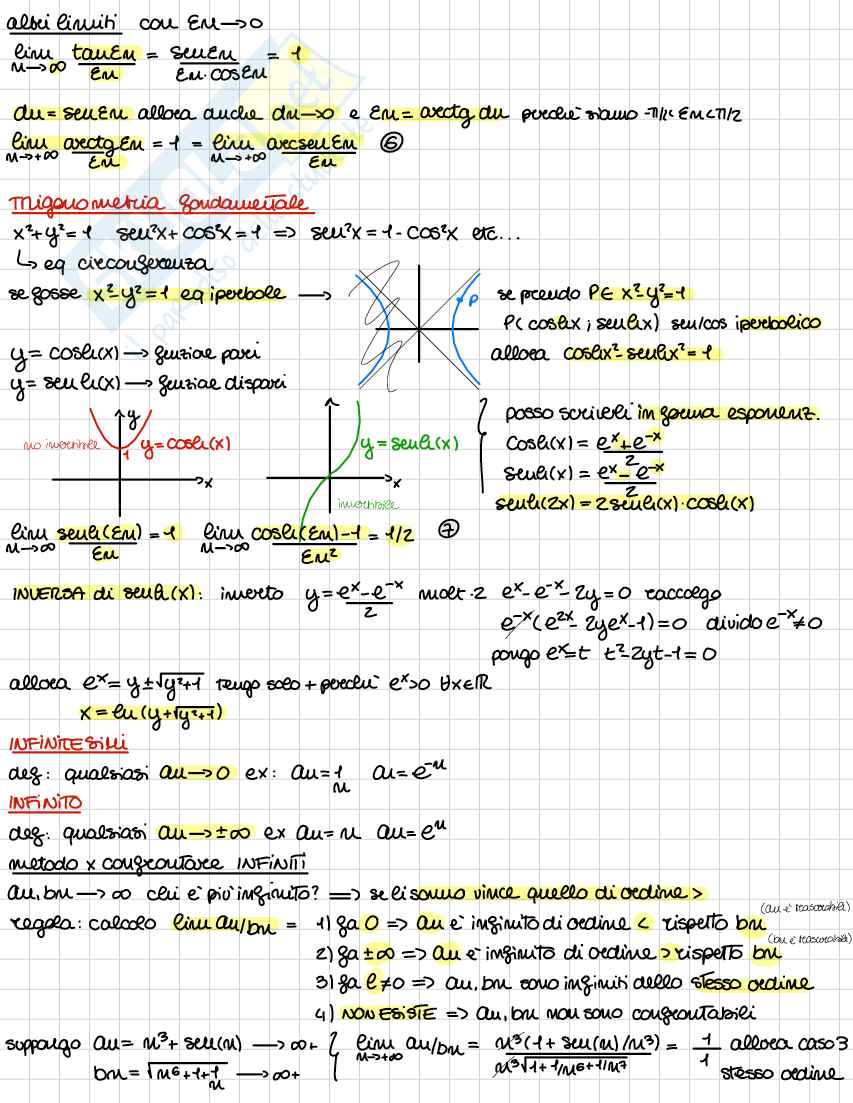 altri limiti con εn→0
lim n→∞ tanεn/εn = senεn/(εn·cosεn) = 1
dn = senεn allora anche dn→0 e εn = arctg dn perché siamo -π/2<εn<π/2
lim n→+∞ arctgεn/εn = 1 = lim n→+∞ arcsenεn/εn ⑥
TRIGONOMETRIA fondamentale
x²+y²=1 sen²x+cos²x=1 => sen²x=1-cos²x etc...
↳ eq circonferenza
se fosse x²-y²=1 eq iperbole →
P
se prendo P∈ x²-y²=1
P(coshx; senhx) sen/cos iperbolico
allora coshx²-senhx²=1
y = cosh(x) → funziae pari
y = senh(x) → funziae dispari
no invertibile
y
y=cosh(x)
1
x
y=senh(x)
x
invertibile
posso scriverli in forma esponenz.
cosh(x) = (e^x+e^-x)/2
senh(x) = (e^x-e^-x)/2
senh(2x) = 2senh(x)·cosh(x)
lim n→∞ senh(εn)/εn = 1 lim n→∞ (cosh(εn)-1)/εn² = 1/2 ⑦
INVERSA di senh(x): inverto y = (e^x-e^-x)/2 molt·2 e^x-e^-x-2y=0 raccolgo
e^-x(e^2x-2ye^x-1)=0 divido e^-x≠0
pongo e^x=t t²-2yt-1=0
allora e^x = y±√(y²+1) tengo solo + perché e^x>0 ∀x∈ℝ
x = ln(y+√(y²+1))
INFINITESIMI
def: qualsiasi an→0 ex: an=1/n an=e^-n
INFINITO
def: qualsiasi an→±∞ ex an=n an=e^n
metodo x confrontare INFINITI
an, bn → ∞ chi è più infinito? => se li sommo vince quello di ordine >
(an è trascurabile)
regola: calcolo lim an/bn = 1) fa 0 => an è infinito di ordine < rispetto bn
(bn è trascurabile)
2) fa ±∞ => an è infinito di ordine > rispetto bn
3) fa l≠0 => an, bn sono infiniti dello stesso ordine
4) NON ESISTE => an, bn non sono confrontabili
suppongo an = n³+sen(n) → ∞+
bn = √(n⁶+1+1/n) → ∞+
lim n→+∞ an/bn = n³(1+sen(n)/n³)/(n³√(1+1/n⁶+1/n⁷)) = 1/1 allora caso 3
stesso ordine